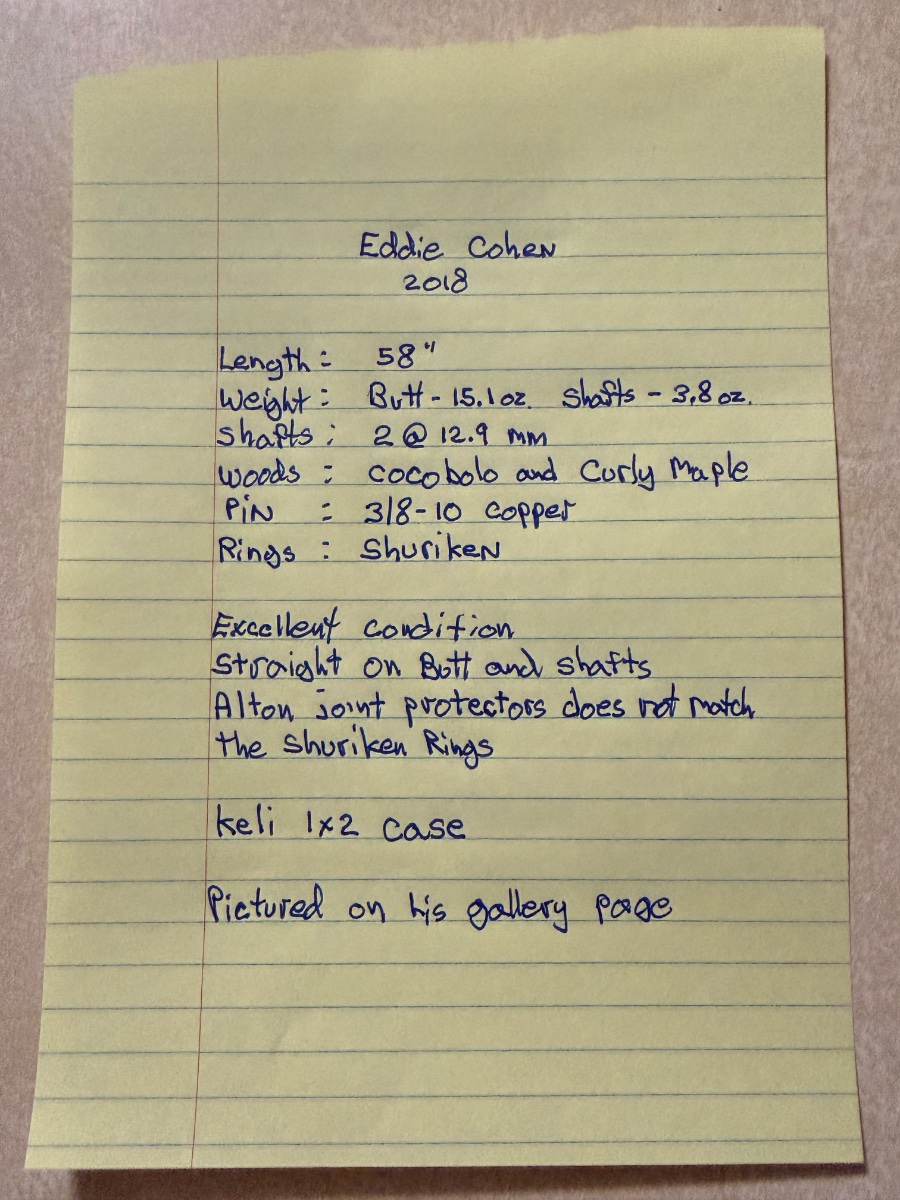 Eddie Cohen
2018
Length : 58"
Weight : Butt - 15.1 oz. Shafts - 3.8 oz.
Shafts : 2 @ 12.9 mm
Woods : Cocobolo and Curly Maple
Pin : 3/8-10 Copper
Rings : Shuriken
Excellent condition
Straight on Butt and shafts
Alton joint protectors does not match
the Shuriken Rings
Keli 1x2 case
Pictured on his gallery page